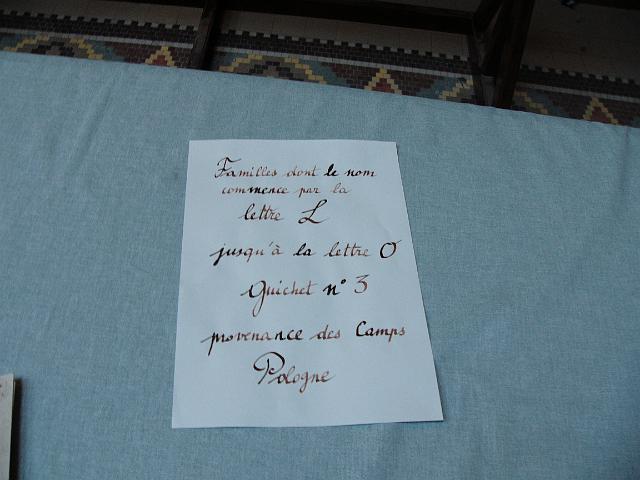 Familles dont le nom
commence par la
lettre L
jusqu'à la lettre O
Guichet n° 3
provenance des Camps
Pologne